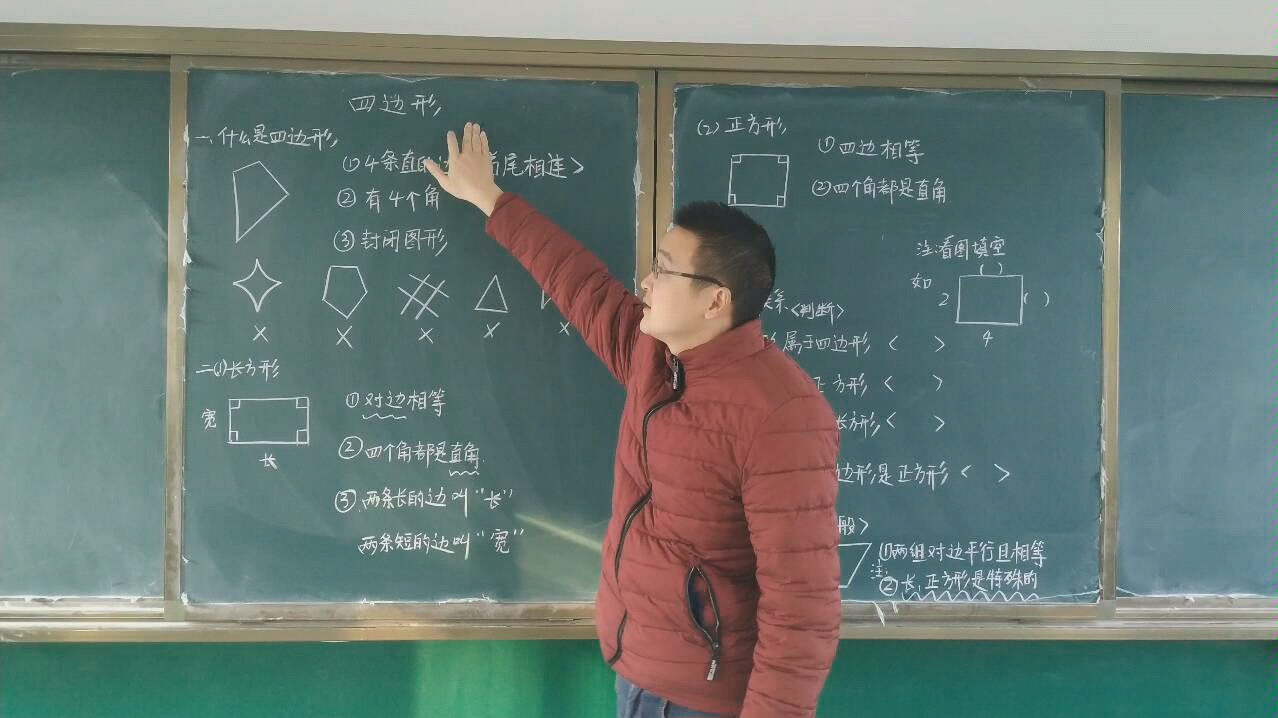 四边形
一、什么是四边形
①4条直的 尾相连>
②有4个角
③封闭图形
× × × × ×
二(1)长方形
宽
长
①对边相等
②四个角都是直角.
③两条长的边叫“长”
两条短的边叫“宽”
(2)正方形
①四边相等
②四个角都是直角
注:看图填空
如
( )
2
( )
4
系<判断>
形属于四边形< >
正方形< >
长方形< >
边形是正方形< >
般>
注:
①两组对边平行且相等
②长.正方形是特殊的